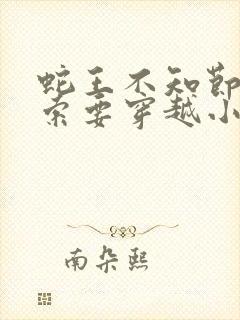 蛇王不知节
索要穿越小
南朵熙